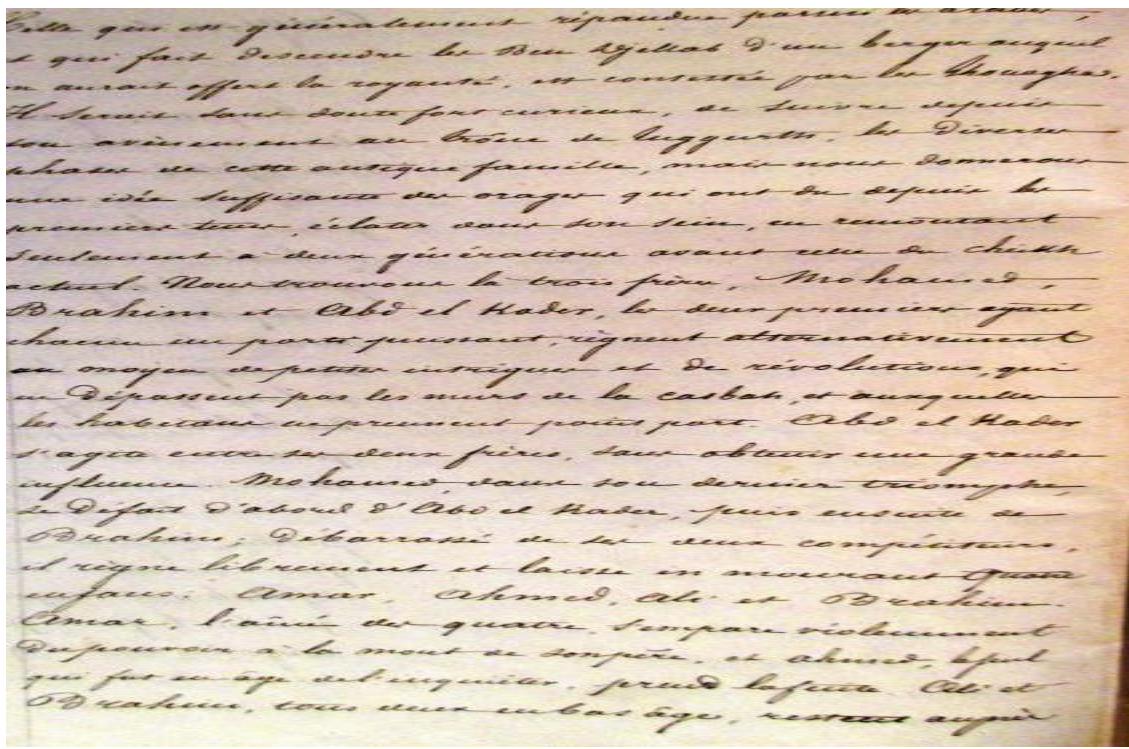 Celle qui est généralement répandue parmi les arabes,
et qui fait descendre les Ben Djellab d'un berger auquel
on aurait offert la royauté, est contestée par les Rhouaghas.
Il serait sans doute fort curieux, de suivre depuis
son avènement au trône de Tuggurth, les diverses
phases de cette antique famille, mais nous donnerons
une idée suffisante des orages qui ont du depuis les
premiers tems, éclater dans son sein, en remontant
seulement à deux générations avant celle du cheikh
actuel. Nous trouvons les trois frères, Mohamed,
Brahim et Abd el Kader, les deux premiers ayant
chacun un parti puissant, règnent alternativement
au moyen de petites intrigues et de révolutions, qui
ne dépassent pas les murs de la casbah, et auxquelles
les habitans ne prennent point part. Abd el Kader
s'agite entre ses deux frères, sans obtenir une grande
influence. Mohamed, dans son dernier triomphe,
se défait d'abord d'Abd el Kader, puis ensuite de
Brahim; Débarrassé de ses deux compétiteurs,
il règne librement et laisse en mourant quatre
enfans: Amar, Ahmed, Ali et Brahim.
Amar, l'aîné des quatre, s'empare violemment
du pouvoir à la mort de son père, et ahmed, le seul
qui fut en âge de l'inquiéter, prend la fuite. Ali et
Brahim, tous deux en bas âge, restent auprès